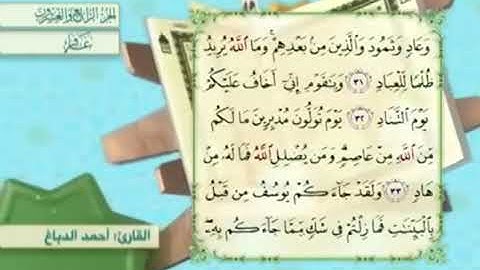 الجزء الرابع والعشرون
غافر
وَعَادٍ وَثَمُودَ وَالَّذِينَ مِنۢ بَعْدِهِمْ ۚ وَمَا اللَّهُ يُرِيدُ
ظُلْمًا لِّلْعِبَادِ ٣١ وَيَٰقَوْمِ إِنِّىٓ أَخَافُ عَلَيْكُمْ
يَوْمَ التَّنَادِ ٣٢ يَوْمَ تُوَلُّونَ مُدْبِرِينَ مَا لَكُم
مِّنَ اللَّهِ مِنْ عَاصِمٍ ۗ وَمَن يُضْلِلِ اللَّهُ فَمَا لَهُۥ مِنْ
هَادٍ ٣٣ وَلَقَدْ جَآءَكُمْ يُوسُفُ مِن قَبْلُ
بِالْبَيِّنَٰتِ فَمَا زِلْتُمْ فِى شَكٍّ مِّمَّا جَآءَكُم بِهِۦ
القارئ: أحمد الدباغ